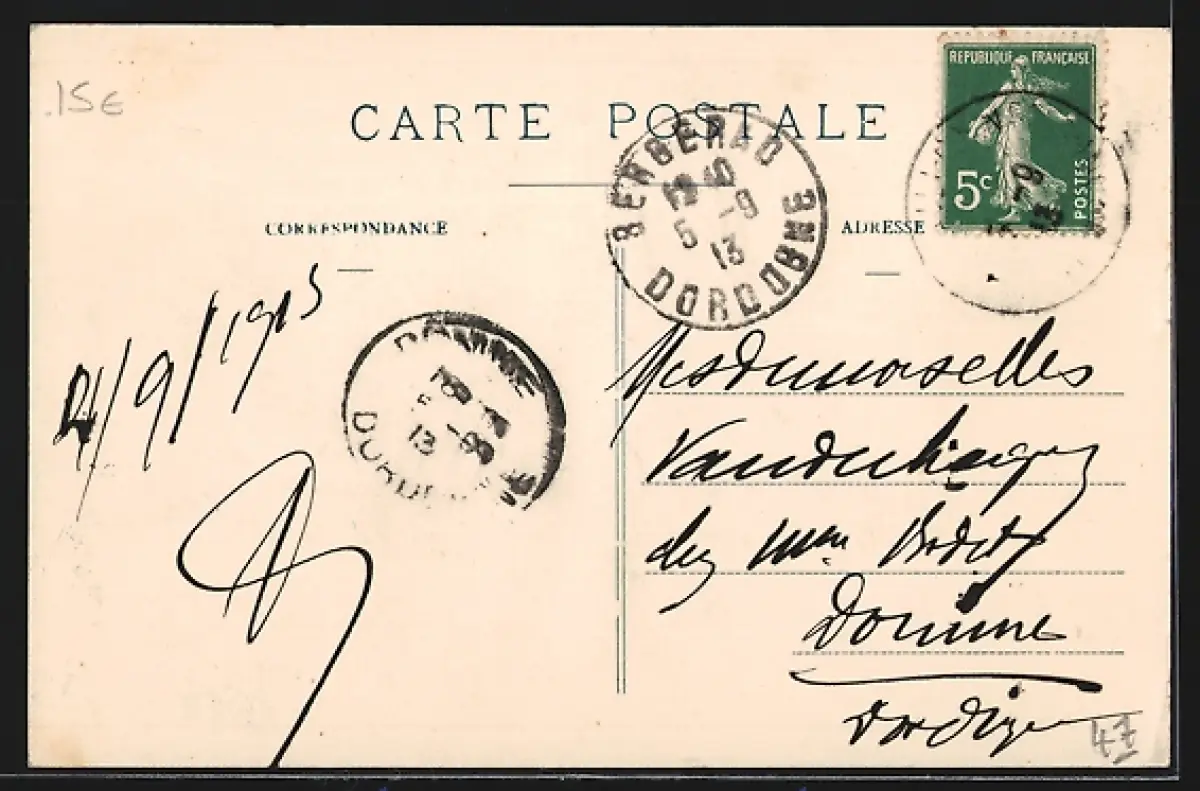 15€
CARTE POSTALE
REPUBLIQUE FRANÇAISE
5c
POSTES
BERGERAC
12 40
5 -9
13
DORDOGNE
CORRESPONDANCE
ADRESSE
4/9/1913
DOMME
13 -9
DORDOGNE
Mesdemoiselles
chez Mme
Domme
Dordogne
47